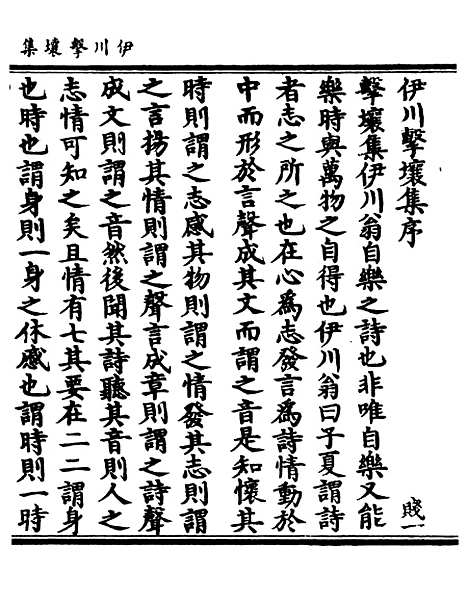 伊川擊壤集
伊川擊壤集序
賤一
擊壤集伊川翁自樂之詩也非唯自樂又能
樂時與萬物之自得也伊川翁曰子夏謂詩
者志之所之也在心為志發言為詩情動於
中而形於言聲成其文而謂之音是知懷其
時則謂之志感其物則謂之情發其志則謂
之言揚其情則謂之聲言成章則謂之詩聲
成文則謂之音然後聞其詩聽其音則人之
志情可知之矣且情有七其要在二二謂身
也時也謂身則一身之休慼也謂時則一時